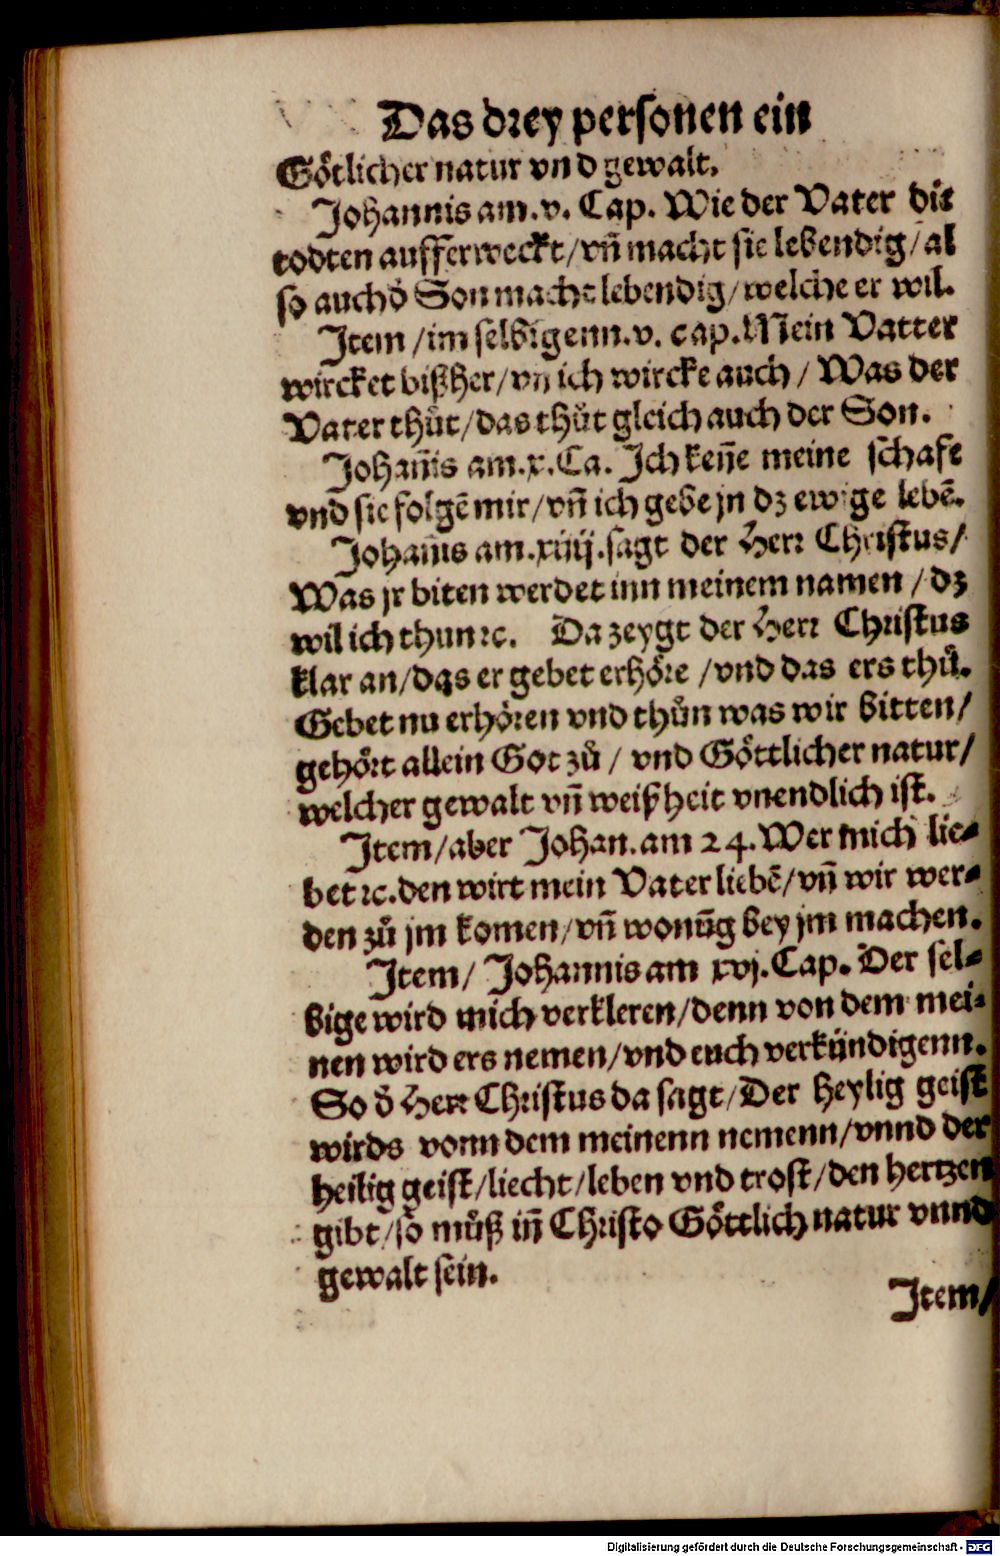 Das drey personen ein
Goͤtlicher natur vnd gewalt.
Johannis am.v. Cap. Wie der Vater die
todten aufferweckt/vñ macht sie lebendig/al
so auch d̕ Son macht lebendig/welche er wil.
Item/im selbigenn.v. cap. Mein Vatter
wircket bißher/vñ ich wircke auch/ Was der
Vater thuͦt/das thuͦt gleich auch der Son.
Johañis am.x.Ca. Ich keñe meine schafe
vnd sie folgẽ mir/vñ ich gebe jn dz ewige lebẽ.
Johañis am.xiiij.sagt der Herr Christus/
Was jr biten werdet inn meinem namen/dz
wil ich thun ꝛc. Da zeygt der Herr Christus
klar an/das er gebet erhoͤre/vnd das ers thuͦ.
Gebet nu erhoͤren vnd thuͦn was wir bitten/
gehoͤrt allein Got zuͦ/ vnd Goͤttlicher natur/
welcher gewalt vñ weißheit vnendlich ist.
Item/aber Johan. am 24. Wer mich lie⸗
bet ꝛc.den wirt mein Vater liebẽ/vñ wir wer⸗
den zuͦ jm komen/vñ wonũg bey jm machen.
Item/ Johannis am xvj.Cap. Der sel⸗
bige wird mich verkleren/denn von dem mei⸗
nen wird ers nemen/vnd euch verkündigenn.
So d̕ Herr Christus da sagt/Der heylig geist
wirds vonn dem meinenn nemenn/vnnd der
heilig geist/liecht/leben vnd trost/den hertzen
gibt/so muͦß iñ Christo Goͤttlich natur vnnd
gewalt sein.
Item/
Digitalisierung gefördert durch die Deutsche Forschungsgemeinschaft - DFG